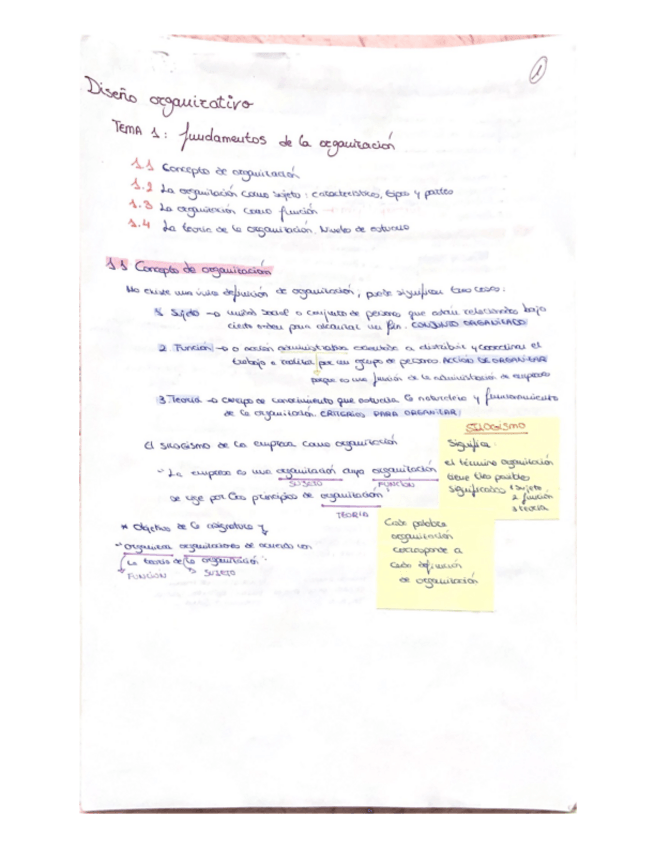 1
Diseño organizativo
TEMA 1: fundamentos de la organización
1.1 Concepto de organización
1.2 La organización como sujeto: características, tipos y partes
1.3 La organización como función
1.4 La teoría de la organización. Niveles de estudio
1.1 Concepto de organización
No existe una única definición de organización, puede significar tres cosas:
1. Sujeto → unidad social o conjunto de personas que están relacionadas bajo
cierto orden para alcanzar un fin. CONJUNTO ORGANIZADO
2. Función → acción administrativa a distribuir y coordinar el
trabajo a realizar por un grupo de personas ACCIÓN DE ORGANIZAR
porque es una función de la administración de empresas
3. Teoría → cuerpo de conocimiento que estudia la naturaleza y funcionamiento
de la organización. CRITERIOS PARA ORGANIZAR
El SILOGISMO de la empresa como organización
"La empresa es una organización cuya organización
SUJETO FUNCIÓN
se rige por los principios de organización"
TEORÍA
* Objetivo de la asignatura
"Organizar organizaciones de acuerdo con
la teoría de la organización"
FUNCIÓN SUJETO
SILOGISMO
Significa:
el término organización
tiene tres posibles
significados 1 sujeto
2 función
3 teoría
Cada palabra
organización
corresponde a
cada definición
de organización